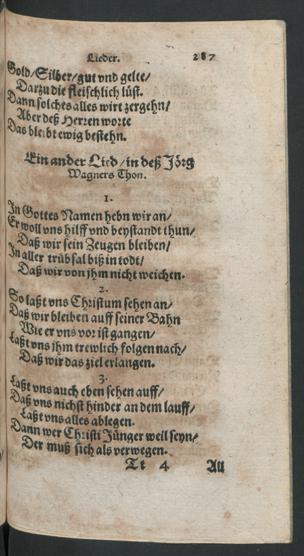 Lieder. 287
Gold/Silber/gut vnd gelte/
Darzu die fleischlich lüst.
Dann solches alles wirt zergehn/
Aber deß Herren worte
Das bleibt ewig bestehn.
Ein ander Lied/in deß Jörg
Wagners Thon.
1.
In Gottes Namen hebn wir an/
Er woll vns hilff vnd beystandt thun/
Daß wir sein Zeugen bleiben/
In aller trübsal biß in todt/
Daß wir von jhm nicht weichen.
2.
So laßt vns Christum sehen an/
Daß wir bleiben auff seiner Bahn
Wie er vns vor ist gangen/
Laßt vns jhm trewlich folgen nach/
Daß wir das ziel erlangen.
3.
Laßt vns auch eben sehen auff/
Daß vns nichst hinder an dem lauff/
Laßt vns alles ablegen.
Dann wer Christi Jünger well seyn/
Der muß sich als verwegen.
Tt 4 All